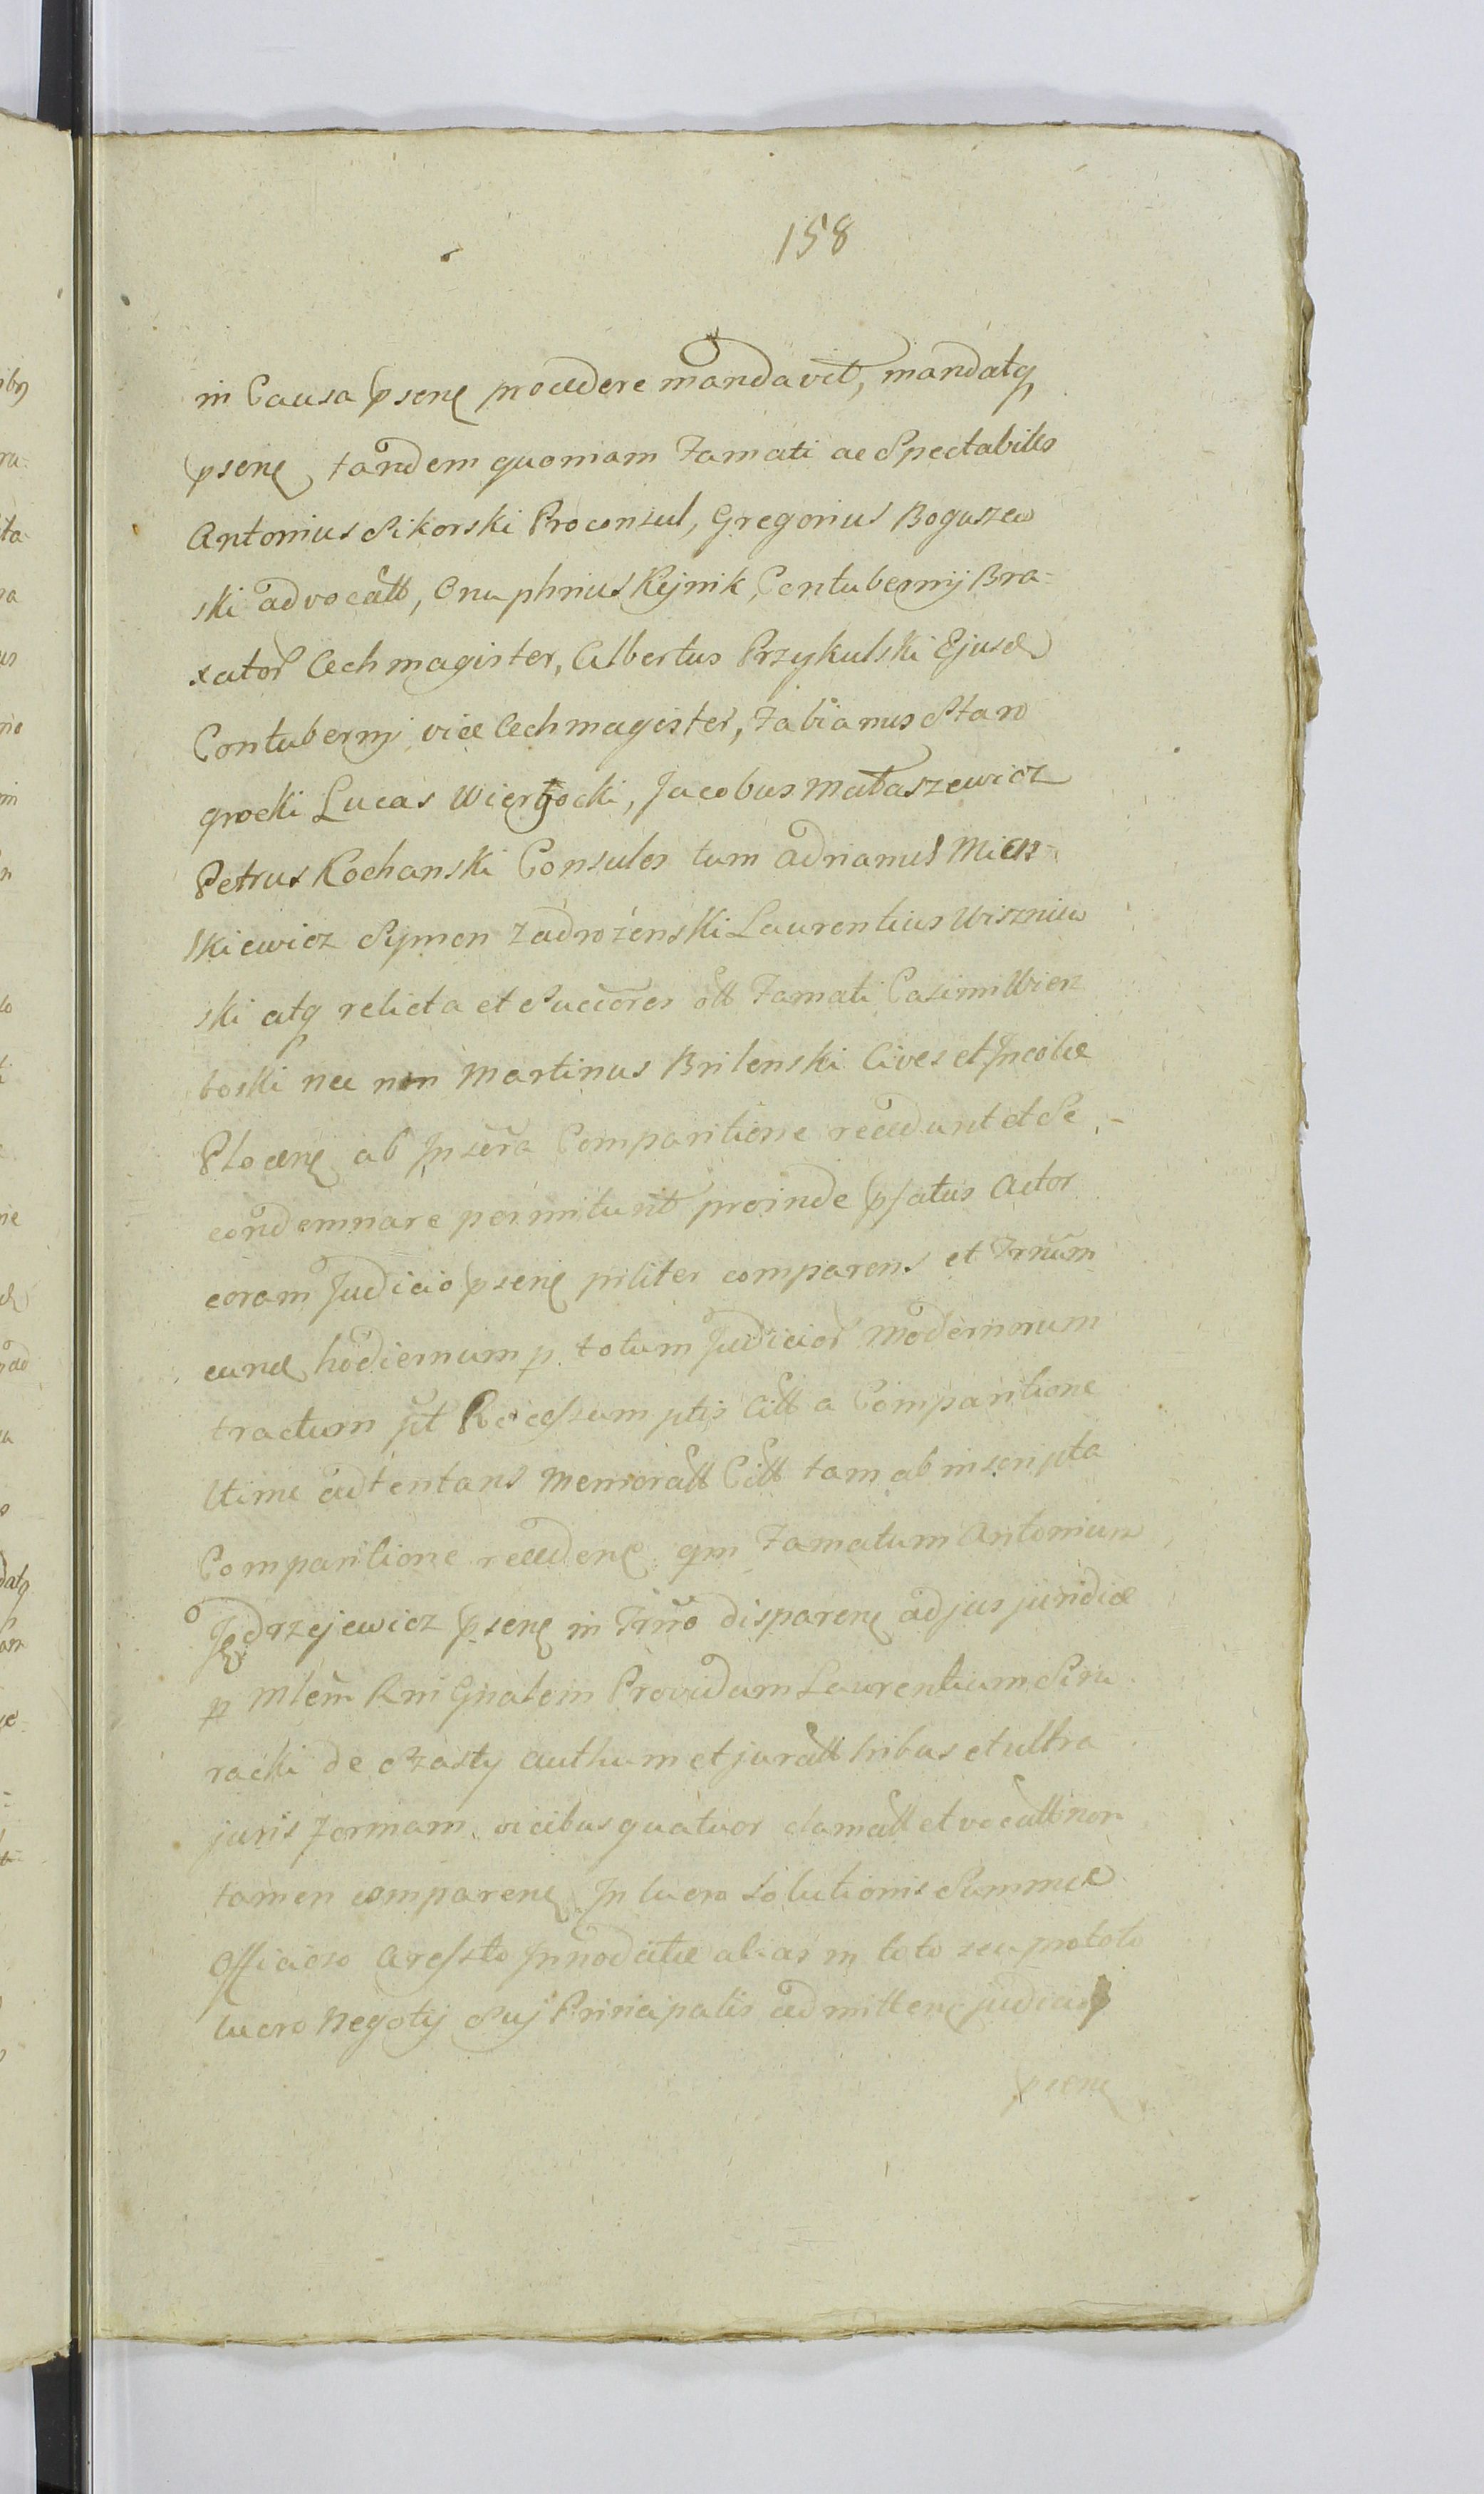 158
in Causa psen procedere mandavit, mandatq
psen tandem quoniam Famati ac Spectabiles
Antonius Sikorski Proconsul, Gregorius Boguszew
ski advocatt, Onuphrius Kejnik, Contubernij Bra=
xator Cechmagister, Albertus Przykulski Ejusd
Contubernij vice Cechmagister, Fabianus Staro
grocki Lucas Wierzbocki, Jacobus Mataszewicz
Petrus Kochanski Consules tum Adrianus Miesz=
kiewicz Symon Zadrożenski Laurentius Wiszniew
ski atq relicta et Succōres ott Famati Casimi Wierz
boski nec non Martinus Brilenski Cives et Incolæ
Plocen ab Inscra Comparitione recedunt et Se
condemnare permitunt proinde psatus Actor
coram Judicio psen pnliter comparens et Trnum
eund hodiernum p totum Judicior modernorum
tractum put Recessum ptis Citt a Comparitione
ltime adtentans Memoratt Citt tam ab inscripta
Comparitione receden qm Famatum Antonium
Jędrzejewicz psen in Trno disparen ad jus juridice
p Mlem Rni Gnalem Providum Laurentium Siru
racki de Szasty authum et juratt tribus et ultra
juris formam vicibus quatuor clamatt et vocatt non
tamen comparen In lucro Solutionis Summæ
Officioso Aressto Innodatæ alias in toto seu pro toto
lucro Negotij Suj Principalis admitten judicio
psen